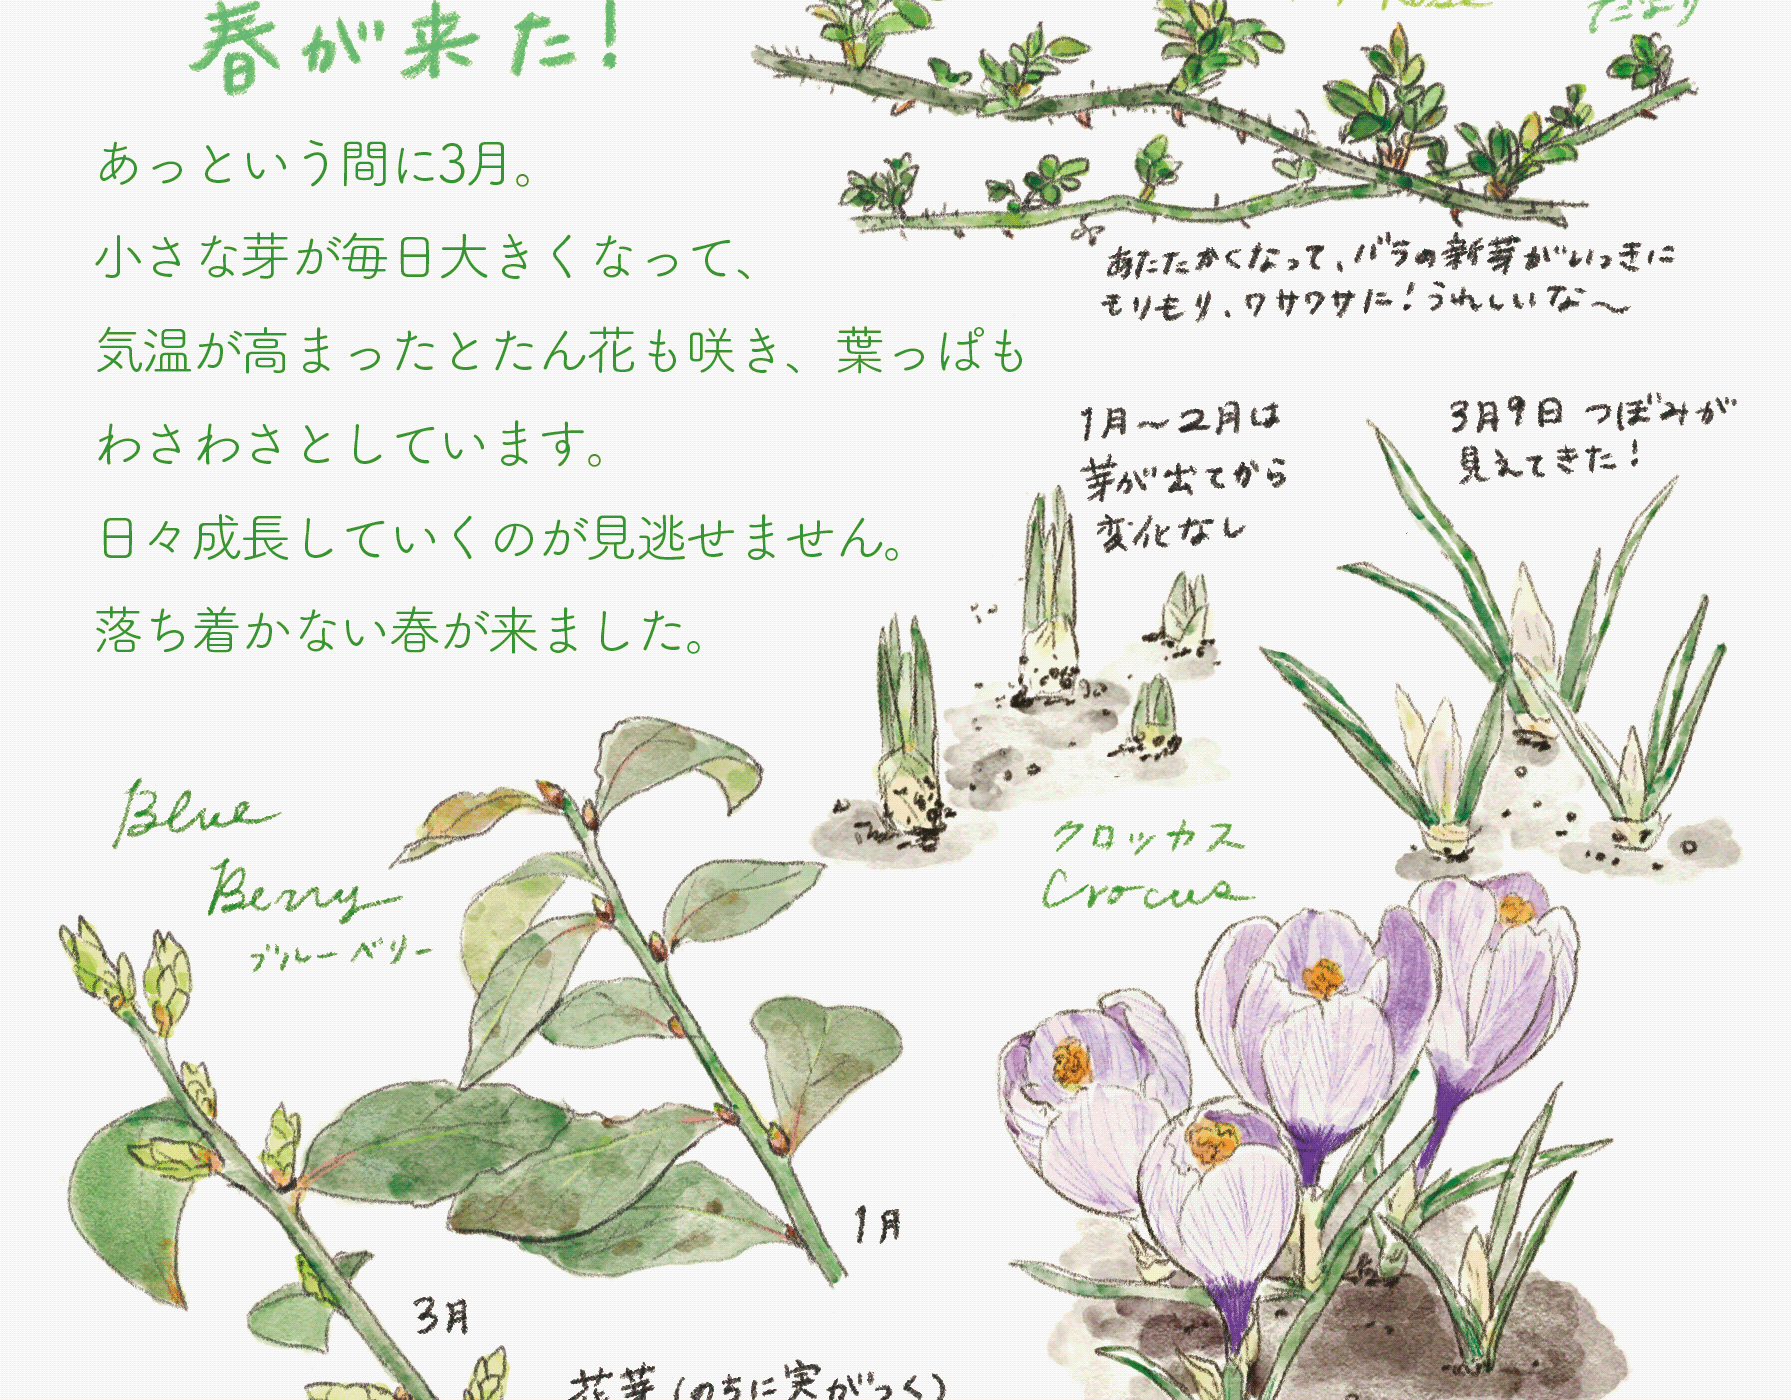 春が来た！
あっという間に3月。
小さな芽が毎日大きくなって、
気温が高まったとたん花も咲き、葉っぱも
わさわさとしています。
日々成長していくのが見逃せません。
落ち着かない春が来ました。
あたたかくなって、バラの新芽がいっきに
モリモリ、ワサワサに！うれしいな〜
1月〜2月は
芽が出てから
変化なし
3月9日 つぼみが
見えてきた！
クロッカス
Crocus
Blue
Berry
ブルーベリー
1月
3月
花芽(のちに実がつく)